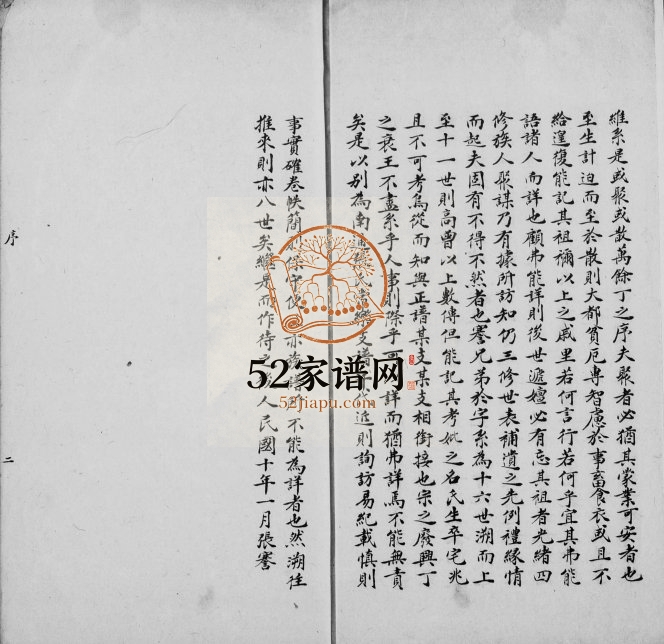 維系是或聚或散萬餘丁之序夫聚者必猶其業可安者也
至生計迫而至於散則大都貧厄專智慮於事畜食衣或且不
給遑復能記其祖禰以上之戚里若何言行若何乎宜其弗能
語諸人而詳也顧弗能詳則後世遞嬗必有忘其祖者光緒四
修族人聚謀乃有據所訪知仍三修世表補遺之先例禮緣情
而起夫固有不得不然者也謇兄弟於字系為十六世溯而上
至十一世則高曾以上數傳但能記其考妣之名氏生卒宅兆
且不可考烏從而知與正譜某支某支相銜接也宗之廢興丁
之衰王不盡系乎人事則際乎可詳而猶弗詳焉不能無責
矣是以別為南通張氏常樂支譜代近則詢訪易紀載慎則
事實確卷帙簡則保守便亦族譜所不能為詳者也然溯往
推來則亦八世矣繼是而作待後之人民國十年一月張謇
序
二
52家谱网
52jiapu.com